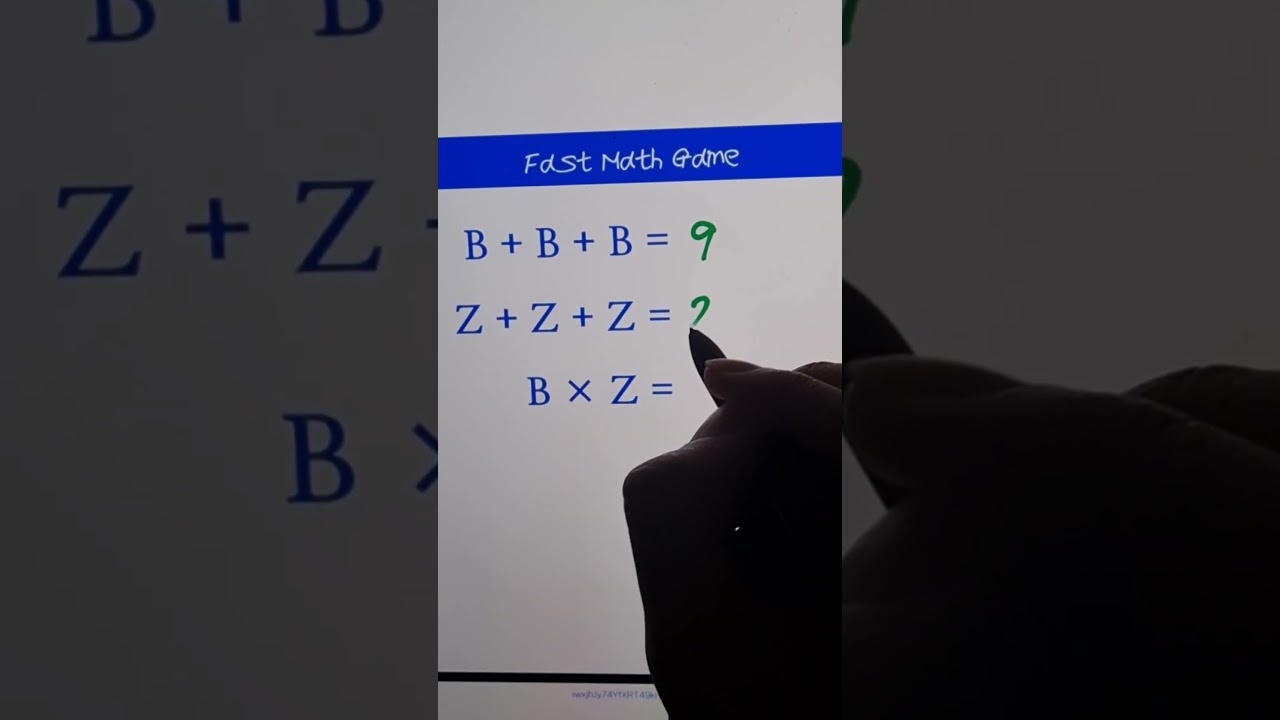 Fast Math Game
B + B + B = 9
Z + Z + Z = 2
B × Z =